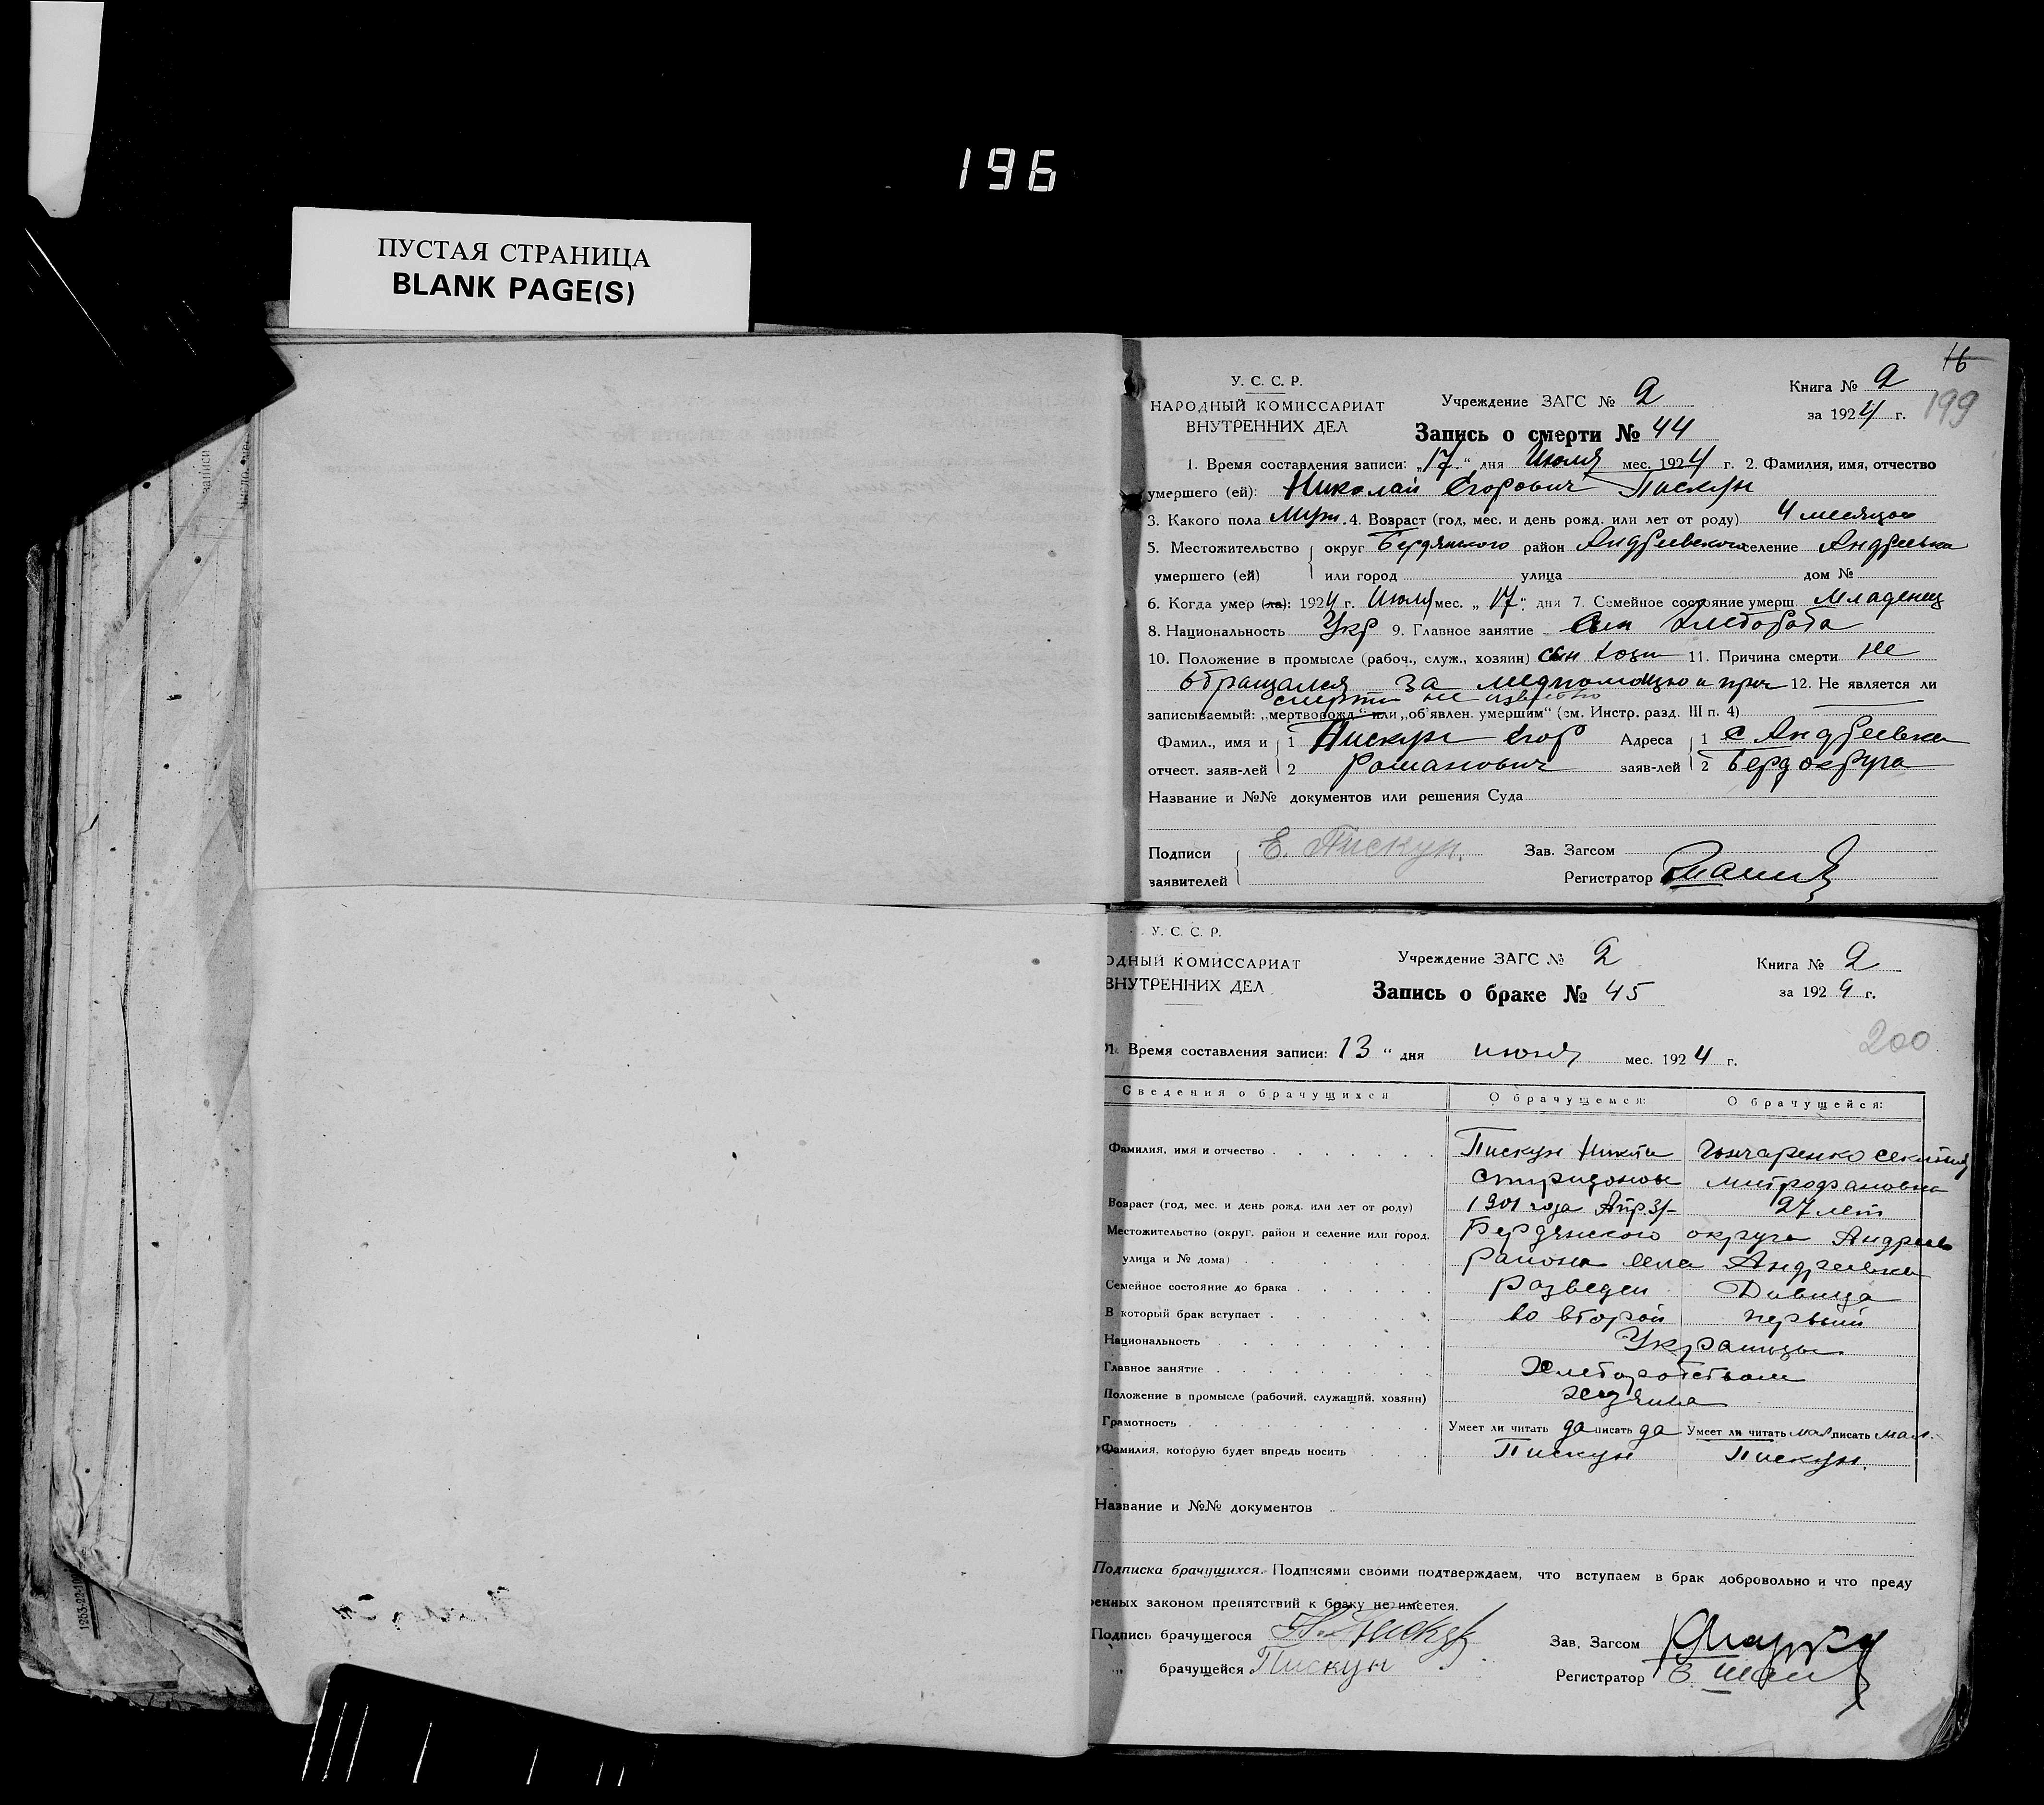 196
ПУСТАЯ СТРАНИЦА
BLANK PAGE(S)
16
У. С. С. Р.
НАРОДНЫЙ КОМИССАРИАТ
ВНУТРЕННИХ ДЕЛ
Учреждение ЗАГС № 2
Книга № 2
за 1924 г. 199
Запись о смерти № 44
1. Время составления записи: „17“ дня Июля мес. 1924 г. 2. Фамилия, имя, отчество
умершего (ей): Николай Егорович Пискун
3. Какого пола Муж. 4. Возраст (год, мес. и день рожд. или лет от роду) 4 месяцов
5. Местожительство округ Бердянского район Андреевского селение Андреевка
умершего (ей) или город улица дом №
6. Когда умер (ла): 1924 г. Июля мес. „17“ дня 7. Семейное состояние умерш. Младенец
8. Национальность Укр 9. Главное занятие Сын хлебороба
10. Положение в промысле (рабоч., служ., хозяин) сын хозя 11. Причина смерти не
обращался за медпомощью и прич 12. Не является ли
смерти не известно
записываемый: „мертворожд.“ или „об'явлен. умершим“ (см. Инстр. разд. III п. 4)
Фамил., имя и 1 Пискун Егор Адреса 1 с Андреевка
отчест. заяв-лей 2 Романович заяв-лей 2 Бердокруга
Название и №№ документов или решения Суда
Подписи Е. Пискун. Зав. Загсом
заявителей Регистратор
У. С. С. Р.
ОДНЫЙ КОМИССАРИАТ
ВНУТРЕННИХ ДЕЛ
Учреждение ЗАГС № 2
Книга № 2
Запись о браке № 45
за 1924 г.
200
1. Время составления записи: 13 “ дня июня мес. 1924 г.
Сведения о брачущихся О брачущемся: О брачущейся:
Фамилия, имя и отчество Пискун Никита Гончаренко
Спиридонов Митрофановна
Возраст (год, мес. и день рожд. или лет от роду) 1901 года Апр. 3/- 27 лет
Местожительство (округ, район и селение или город, Бердянского округа Андреев
улица и № дома) района села Андреевка
Семейное состояние до брака Разведен Дивица
В который брак вступает во второй первый
Национальность Украинцы
Главное занятие Хлеборобством
Положение в промысле (рабочий, служащий, хозяин) хозяина
Грамотность Умеет ли читать да писать да Умеет ли читать мал писать мал.
Фамилия, которую будет впредь носить Пискун Пискун.
Название и №№ документов
Подписка брачущихся. Подписями своими подтверждаем, что вступаем в брак добровольно и что преду
енных законом препятствий к браку не имеется.
Подпись брачущегося Н. Пискун Зав. Загсом
„ брачущейся Пискун Регистратор